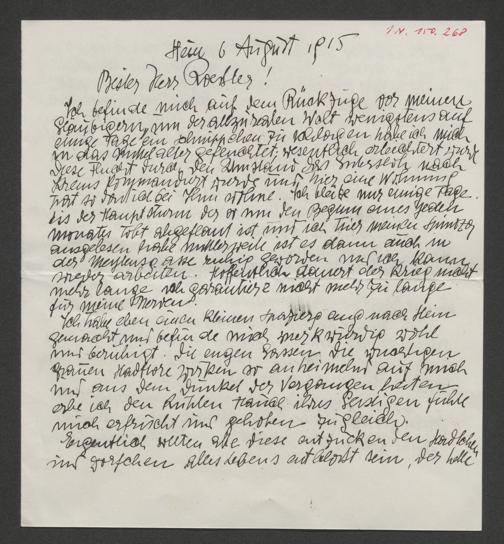 I.N. 150.268
Stein 6 August 1915
Bester Herr Roessler!
Ich befinde mich auf dem Rückzuge vor meinen
Gläubigern, um der allzurealen Welt wenigstens auf
einige Tage ein Schnippchen zu schlagen habe ich mich
in das Mittelalter geflüchtet, wesentlich erleichtert wurde
diese Flucht durch den Umstand das
Krems kommandiert wurde und hier eine Wohnung
hat so daß ich bei Ihm wohne. Ich bleibe nur einige Tage
bis der Hauptsturm der so um den Beginn eines jeden
Monats tobt abgeflaut ist und ich hier meinen
ausgelesen habe mittlerweile ist es dann auch in
der ruhig geworden und ich kann
wieder arbeiten. Hoffentlich dauert der Krieg nicht
mehr lange ich garantiere nicht mehr zu lange
für meine Nerven.
Ich habe eben einen kleinen Spaziergang nach Stein
gemacht und befinde mich merkwürdig wohl
und beruhigt. Die engen Gassen, die wuchtigen
grauen Stadttore wirken so anheimelnd auf mich
und aus dem Dunkel der Vergangenheiten
ich den kühlen Hauch ihres Geistigen fühle
mich erfrischt und gehoben zugleich.
Eigentlich sollten alle diese entzückenden Städtchen
und Dörfchen alles Lebens entblösst sein, der helle